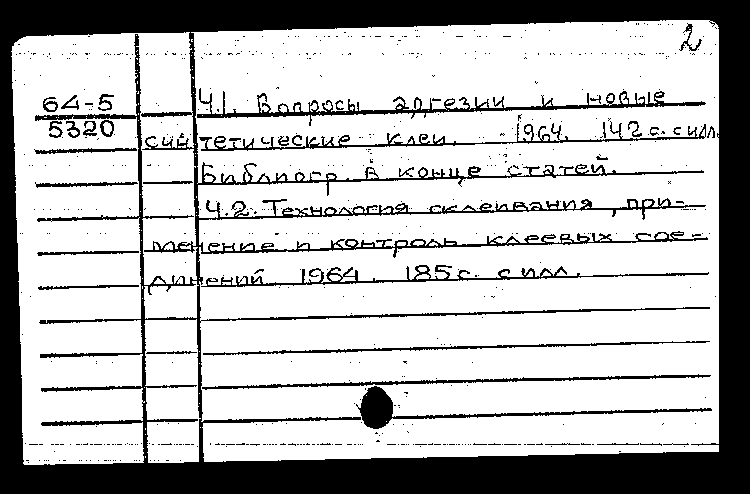 2
64-5
5320
Ч.1. Вопросы адгезии и новые
синтетические клеи. 1964. 142 с. с илл.
Библиогр. в конце статей.
Ч.2. Технология склеивания, при-
менение и контроль клеевых сое-
динений 1964. 185 с. с илл.